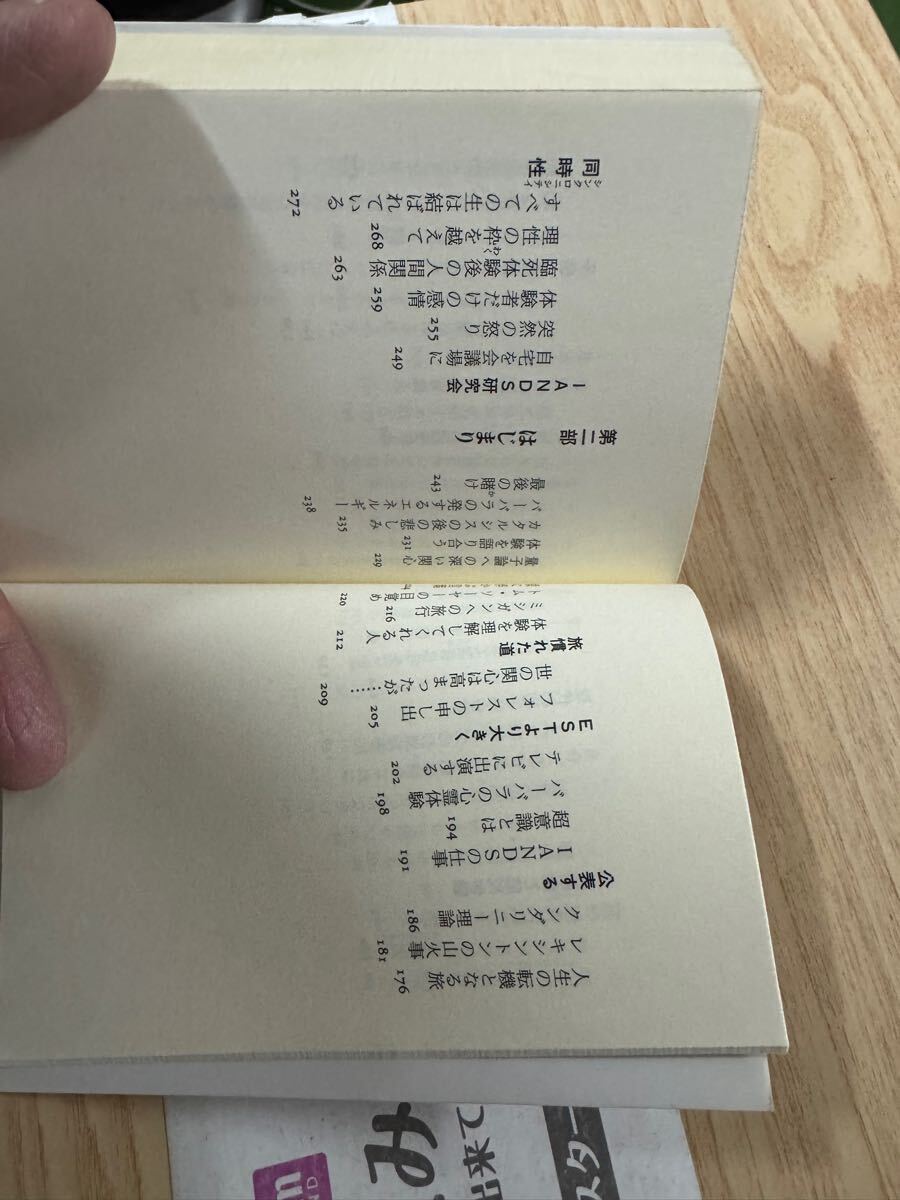 人生の転機となる旅 176
レキシントンの山火事 181
クンダリニー理論 186
公表する
IANDSの仕事 191
超意識とは 194
バーバラの心霊体験 198
テレビに出演する 202
ESTより大きく
フォレストの申し出 205
世の関心は高まったが…… 209
旅慣れた道
体験を理解してくれる人 212
ミシガンへの旅行 216
トム・ソーヤーの目覚め 220
量子論への深い関心 229
体験を語り合う 231
カタルシスの後の悲しみ 235
バーバラの発するエネルギー 238
最後の賭け 243
か
第二部 はじまり
IANDS研究会
自宅を会議場に 249
突然の怒り 255
体験者だけの感情 259
臨死体験後の人間関係 263
理性の枠を越えて 268
わく
すべての生は結ばれている 272
同時性
シンクロニシティ
スター